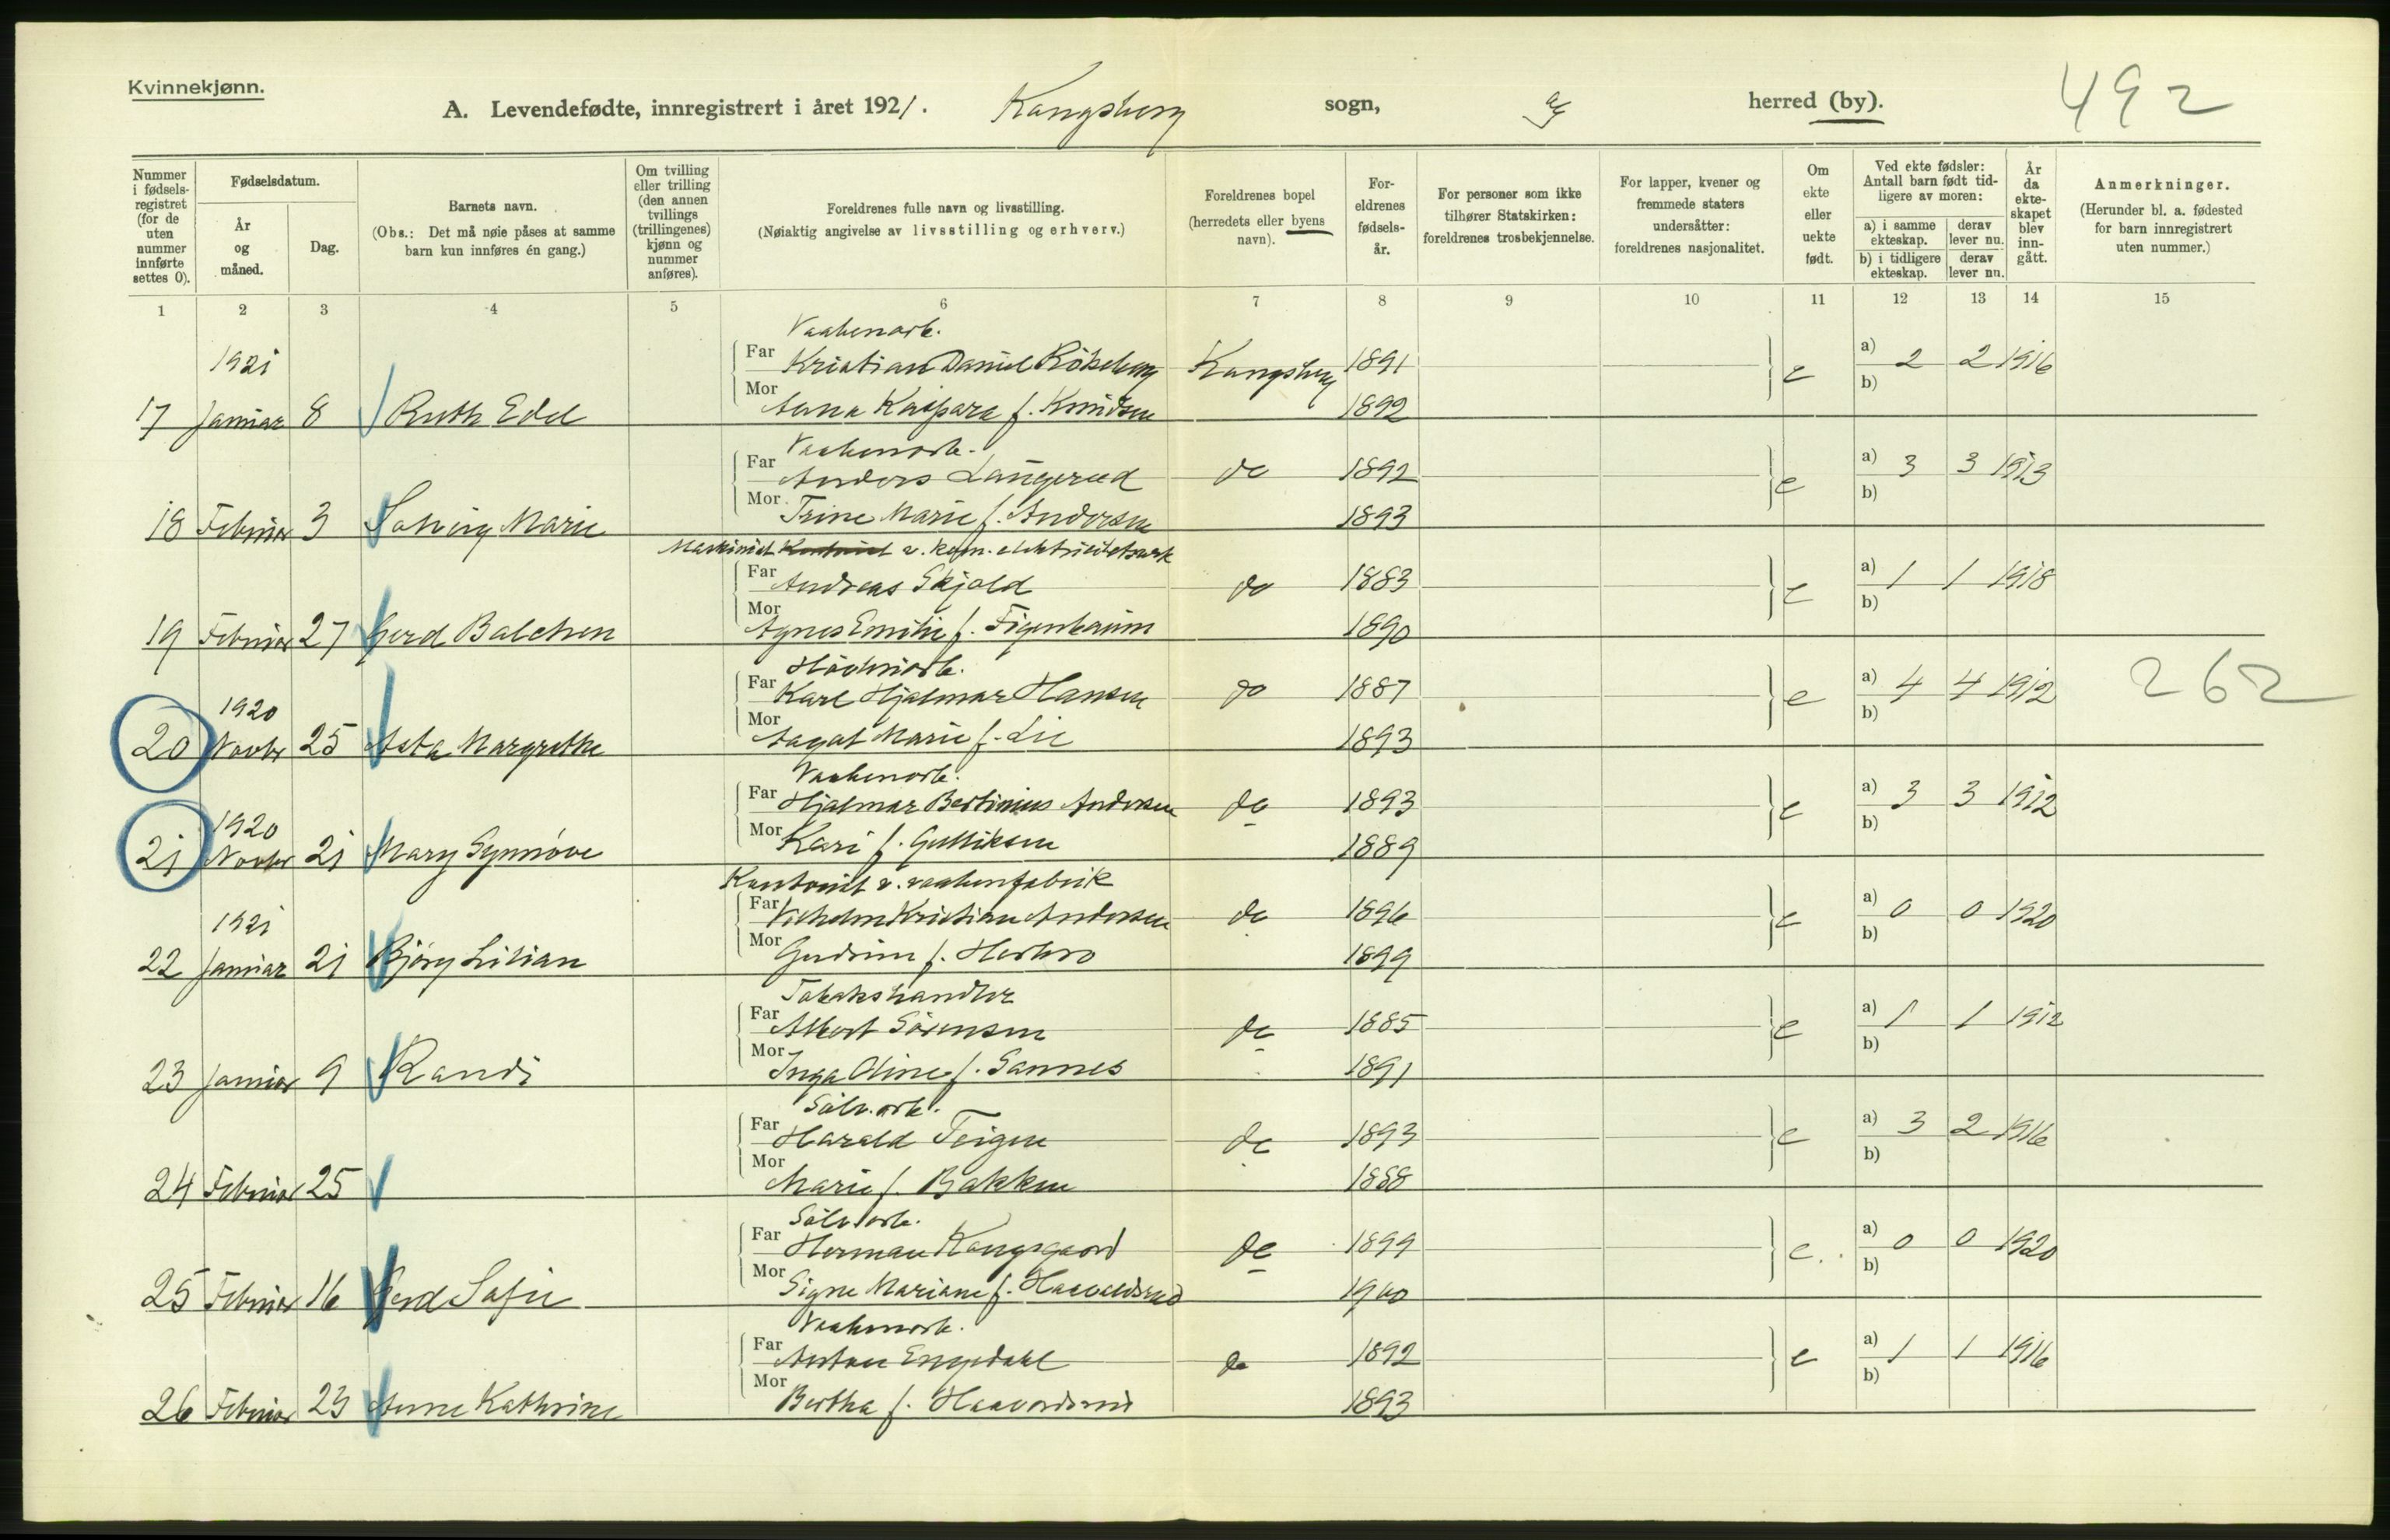 Kvinnekjønn.
A. Levendefødte, innregistrert i året 1921. Kongsberg sogn, herred (by). 492
Nummer i fødselsregistret (for de uten nummer innførte settes 0).
Fødselsdatum.
År og måned.
Dag.
Barnets navn.
(Obs.: Det må nøie påses at samme barn kun innføres én gang.)
Om tvilling eller trilling (den annen tvillings (trillingenes) kjønn og nummer anføres).
Foreldrenes fulle navn og livsstilling.
(Nøiaktig angivelse av livsstilling og erhverv.)
Foreldrenes bopel (herredets eller byens navn).
Foreldrenes fødselsår.
For personer som ikke tilhører Statskirken: foreldrenes trosbekjennelse.
For lapper, kvener og fremmede staters undersåtter: foreldrenes nasjonalitet.
Om ekte eller uekte født.
Ved ekte fødsler: Antall barn født tidligere av moren:
a) i samme ekteskap. derav lever nu.
b) i tidligere ekteskap. derav lever nu.
År da ekteskapet blev inngått.
Anmerkninger.
(Herunder bl. a. fødested for barn innregistrert uten nummer.)
1 2 3 4 5 6 7 8 9 10 11 12 13 14 15
Vaabenarb.
1921 Far Kristian Daniel Kongsberg 1891 e a) 2 2 1916
b)
17 Januar 8 Ruth Edel Mor Anna Kaspara f. Knudsen 1892
Vaabenarb.
Far Anders Langerud do 1892 e a) 3 3 1913
b)
18 Februar 3 Solveig Marie Mor Trine Marie f. Andersen 1893
Maskinist v. kom. elektricitetsverk
Far Andreas Skjold do 1883 e a) 1 1 1918
b)
19 Februar 27 Gerd Balchen Mor Agnes Emilie f. Figenbaum 1890
Far Karl Hjalmar Hansen do 1887 e a) 4 4 1912 262
b)
1920
20 Novbr 25 Asta Margrethe Mor Aagot Marie f. Lie 1893
Vaabenarb.
Far Hjalmar Bertinius Andersen do 1893 e a) 3 3 1912
b)
1920
21 Novbr 21 Mary Synnøve Mor Kari f. Gulliksen 1889
Kontorist v. vaabenfabrik
Far Vilhelm Kristian Andersen do 1896 e a) 0 0 1920
b)
1921
22 Januar 21 Bjørg Lilian Mor Gudrun f. Herbro 1899
Tobakshandler
Far Albert Sørensen do 1885 e a) 1 1 1912
b)
23 Januar 9 Randi Mor Inga Oline f. Sannes 1891
Sølv.arb.
Far Harald Teigen do 1893 e a) 3 2 1916
b)
24 Februar 25 Mor Marie f. Bakken 1888
Sølv.arb.
Far Herman Kongsgaard do 1899 e. a) 0 0 1920
b)
25 Februar 16 Gerd Sofie Mor Signe Mariane f. Haavaldsrud 1900
Vaabenarb.
Far Anton Engedahl do 1892 e a) 1 1 1916
b)
26 Februar 23 Anne Kathrine Mor Bertha f. Haavardsrud 1893